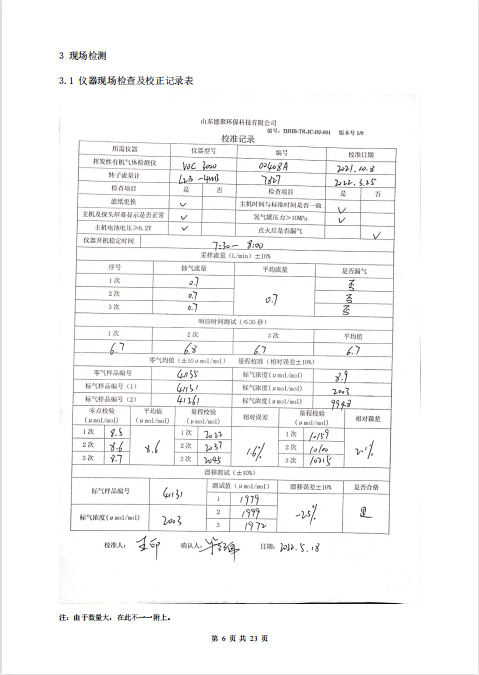 3 现场检测
3.1 仪器现场检查及校正记录表
山东德聚环保科技有限公司
编号：DJHB-TR-JC-HJ-001 版本号 1/0
校准记录
所需仪器 仪器型号 编号 校准日期
挥发性有机气体检测仪 VOC 3000 02408A 2021.10.8
转子流量计 LZB-4WB 7827 2022.3.25
检查项目 是 否 检查项目 是 否
滤纸更换 ✓ 主机时间与标准时间是否一致 ✓
主机及探头屏幕显示是否正常 ✓ 氢气罐压力>10MPa ✓
主机电池电压≥6.2V ✓ 点火后是否漏气 ✓
仪器开机稳定时间 7:30— 8:00
采样流量（L/min）±10%
序号 抽气流量 平均流量 是否漏气
1 次 0.7 否
2 次 0.7 0.7 否
3 次 0.7 否
响应时间测试（≤30 秒）
1 次 2 次 3 次 平均值
6.7 6.8 6.7 6.7
零气均值（±10μmol/mol） 量程校准（相对误差±10%）
零气样品编号 41135 标气浓度(μmol/mol) 8.9
标气样品编号（1） 41131 标气浓度(μmol/mol) 2003
标气样品编号（2） 41261 标气浓度(μmol/mol) 9948
零点校验（μmol/mol） 平均值（μmol/mol） 量程校验（μmol/mol） 相对误差 量程校验（μmol/mol） 相对误差
1 次 8.5 1 次 2022 1 次 10159
2 次 8.6 8.6 2 次 2037 1.6% 2 次 10100 2.1%
3 次 8.7 3 次 2045 3 次 10215
漂移测试（±10%）
标气样品编号 41131 测试值（μmol/mol） 漂移误差±10% 是否合格
1 1979
标气浓度(μmol/mol) 2003 2 1999 -2.5% 是
3 1972
校准人： 确认人： 日期：2022.5.18
注：由于数量大，在此不一一附上。
第 6 页 共 23 页